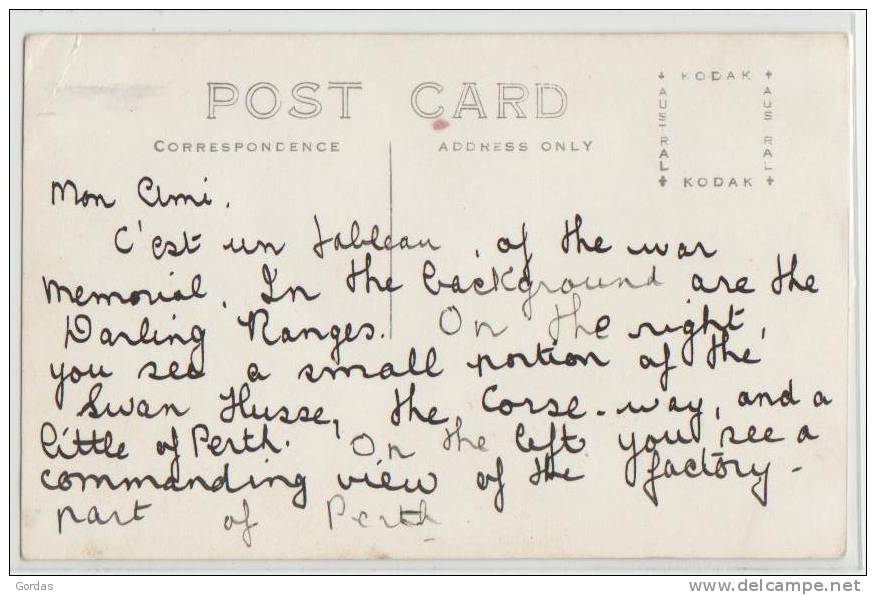 POST CARD
CORRESPONDENCE
ADDRESS ONLY
KODAK
AUSTRAL
AUS RAL
KODAK
Mon Ami.
C'est un tableau, of the war
Memorial. In the background are the
Darling Ranges. On the right,
you see a small portion of the
Swan Husse, the Corse-way, and a
little of Perth. On the left you see a
commanding view of the factory-
part of Perth
Gordas
www.delcampe.net